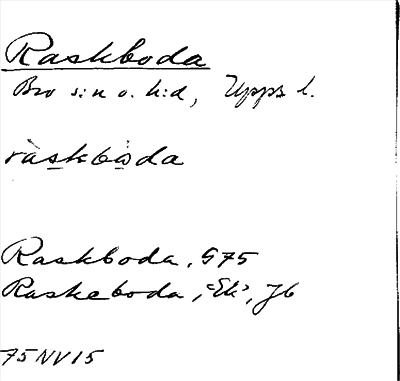 Raskboda
Bro s:n o. h:d, Upps l.
ràskbòda
Raskboda, G75
Raskeboda, "Ek", Jb
75NV15